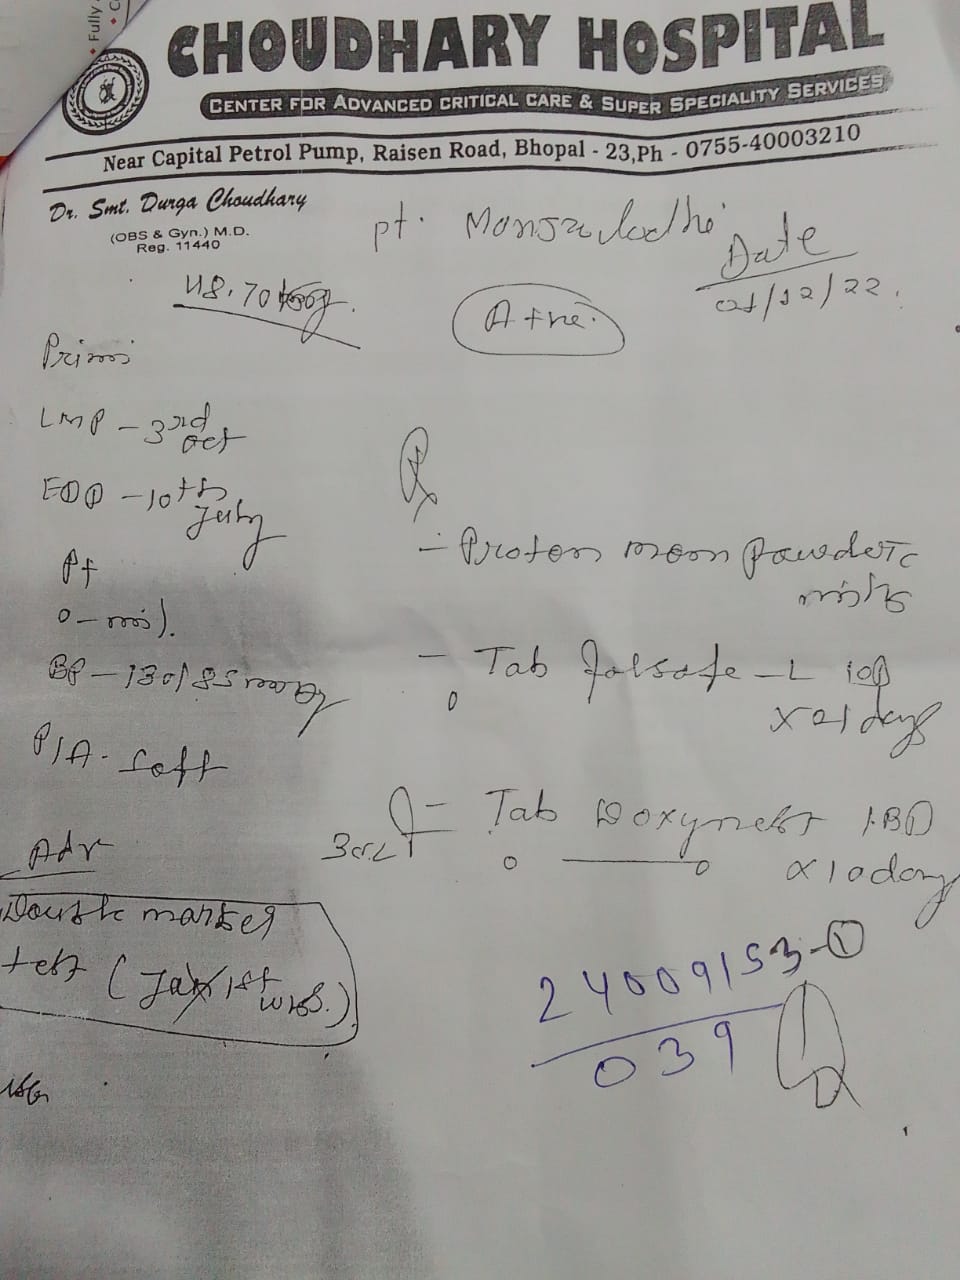 Fully
CHOUDHARY HOSPITAL
CENTER FOR ADVANCED CRITICAL CARE & SUPER SPECIALITY SERVICES
Near Capital Petrol Pump, Raisen Road, Bhopal - 23,Ph - 0755-40003210
Dr. Smt. Durga Choudhary
(OBS & Gyn.) M.D.
Reg. 11440
pt.
Date
01/12/22
48.70
A +ve.
Primi
LMP - 3rd Oct
EDD - 10th July
BP - 130/85
P/A - Soft
Adv
Double marker
test (Jan 1st
Rx
- Proten mom powder c
milk
- Tab folsafe - L 1OD
x 21 days
- Tab Doxynest 1BD
x 10 days
24009153-1
039